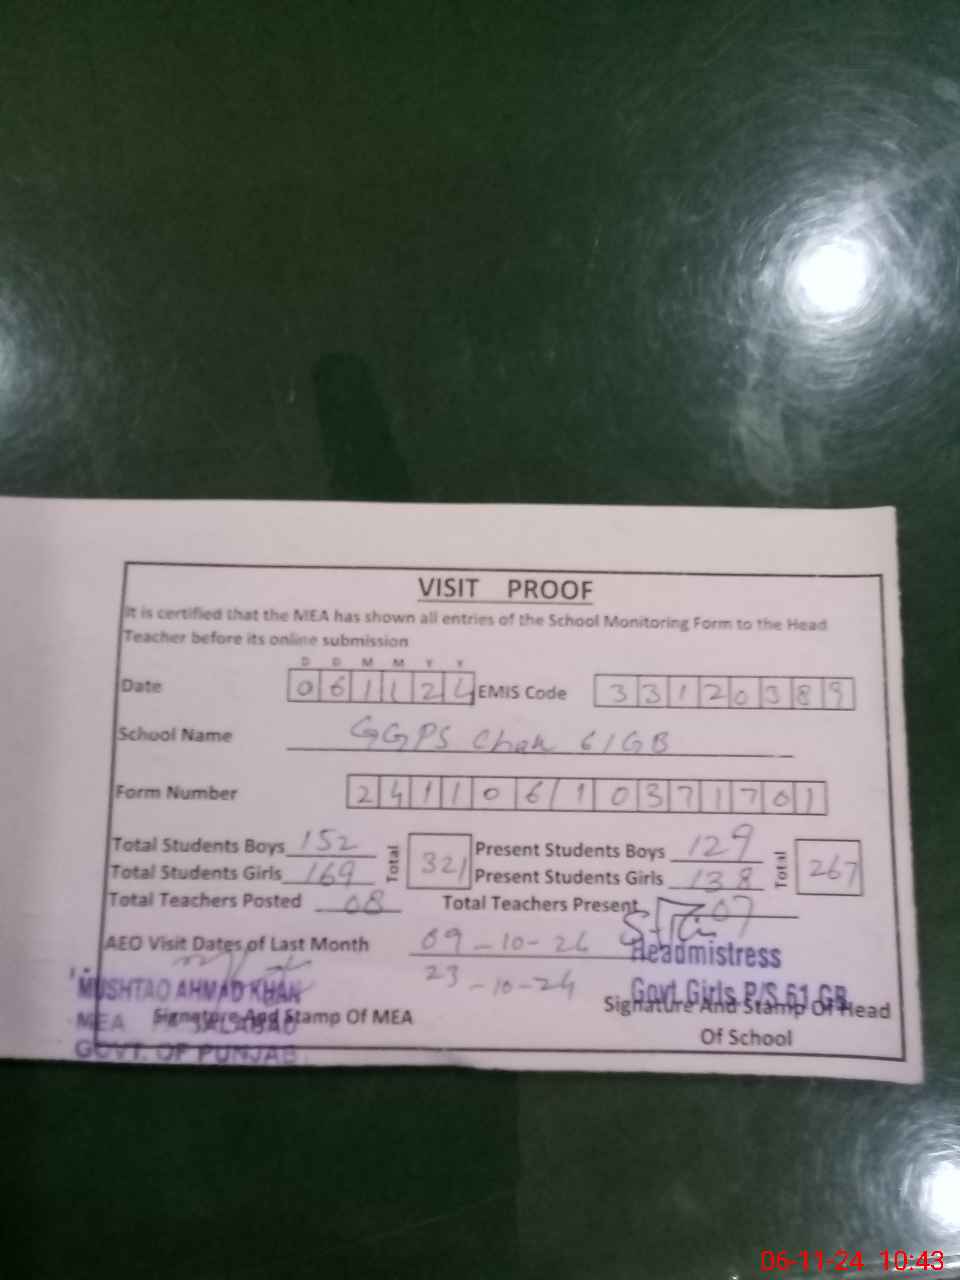 VISIT PROOF
It is certified that the MEA has shown all entries of the School Monitoring Form to the Head
Teacher before its online submission
D D M M Y Y
Date 061124 EMIS Code 33120389
School Name GGPS Chak 61GB
Form Number 24110610371701
Total Students Boys 152 Total 321 Present Students Boys 129 Total 267
Total Students Girls 169 Present Students Girls 138
Total Teachers Posted 08 Total Teachers Present 07
AEO Visit Dates of Last Month 09-10-24
23-10-24
Headmistress
Govt Girls P/S 61 GB
MUSHTAQ AHMAD KHAN
MEA
GOVT. OF PUNJAB
Signature And Stamp Of MEA
Signature And Stamp Of Head
Of School
06-11-24 10:43